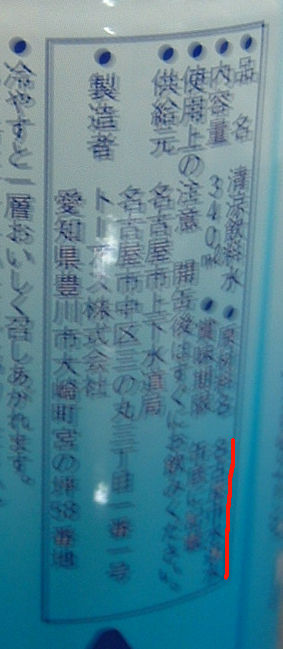 ●品 名 清涼飲料水 ●原材料名 名古屋市水道水
●内容量 340ml ●賞味期限 缶底に記載
●使用上の注意 開缶後はすぐにお飲みください。
●供給元 名古屋市上下水道局
名古屋市中区三の丸三丁目一番一号
●製造者 株式会社
愛知県豊川市大崎町宮の坪58番地
●冷やすと一層おいしく召しあがれます。